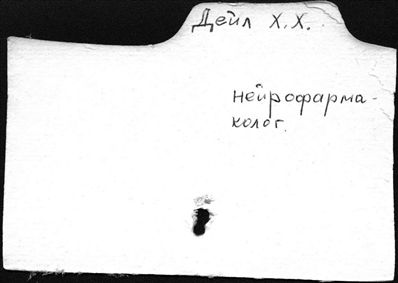 Дейл Х.Х.
нейрофарма-
колог.